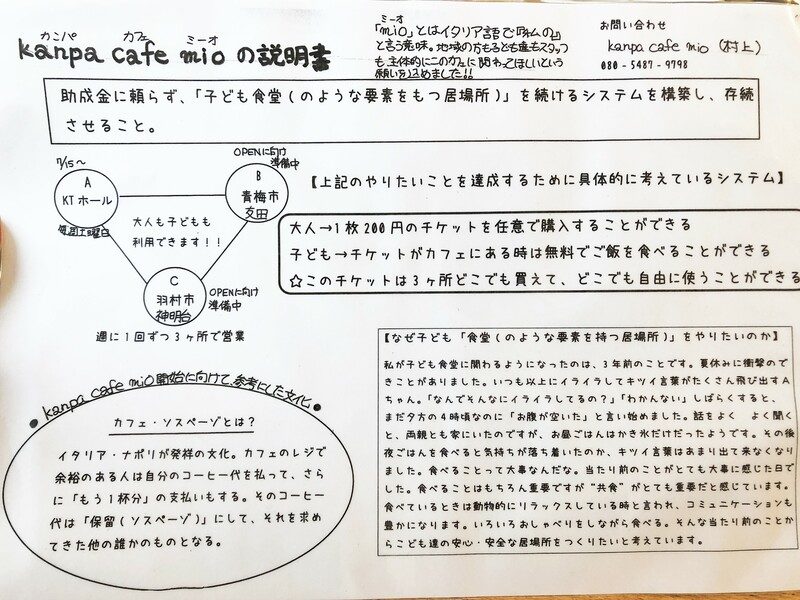 カンパ カフェ ミーオ
kanpa cafe mio の説明書
ミーオ
「mio」とはイタリア語で『私の』
と言う意味。地域の方も子ども達もスタッフ
も主体的にこのカフェに関わってほしいという
願いを込めました!!
お問い合わせ
kanpa cafe mio (村上)
080-5487-9798
助成金に頼らず、「子ども食堂(のような要素をもつ居場所)」を続けるシステムを構築し、存続
させること。
7/15～
A
KTホール
毎週土曜日
OPENに向け
準備中
B
青梅市
友田
大人も子どもも
利用できます!!
C
羽村市
神明台
OPENに向け
準備中
週に1回ずつ3ヶ所で営業
【上記のやりたいことを達成するために具体的に考えているシステム】
大人→1枚200円のチケットを任意で購入することができる
子ども→チケットがカフェにある時は無料でご飯を食べることができる
☆このチケットは3ヶ所どこでも買えて、どこでも自由に使うことができる
●kanpa cafe mio開始に向けて、参考にした文化●
カフェ・ソスペーゾとは?
イタリア・ナポリが発祥の文化。カフェのレジで
余裕のある人は自分のコーヒー代を払って、さら
に「もう1杯分」の支払いもする。そのコーヒー
代は「保留(ソスペーゾ)」にして、それを求め
てきた他の誰かのものとなる。
【なぜ子ども「食堂(のような要素を持つ居場所)」をやりたいのか】
私が子ども食堂に関わるようになったのは、3年前のことです。夏休みに衝撃ので
きことがありました。いつも以上にイライラしてキツイ言葉がたくさん飛び出すA
ちゃん。「なんでそんなにイライラしてるの?」「わかんない」しばらくすると、
まだ夕方の4時頃なのに「お腹が空いた」と言い始めました。話をよく よく聞く
と、両親とも家にいたのですが、お昼ごはんはかき氷だけだったようです。その後
夜ごはんを食べると気持ちが落ち着いたのか、キツイ言葉はあまり出て来なくなり
ました。食べることって大事なんだな。当たり前のことがとても大事に感じた日で
した。食べることはもちろん重要ですが“共食”がとても重要だと感じています。
食べているときは動物的にリラックスしている時と言われ、コミュニケーションも
豊かになります。いろいろおしゃべりをしながら食べる。そんな当たり前のことか
らこども達の安心・安全な居場所をつくりたいと考えています。